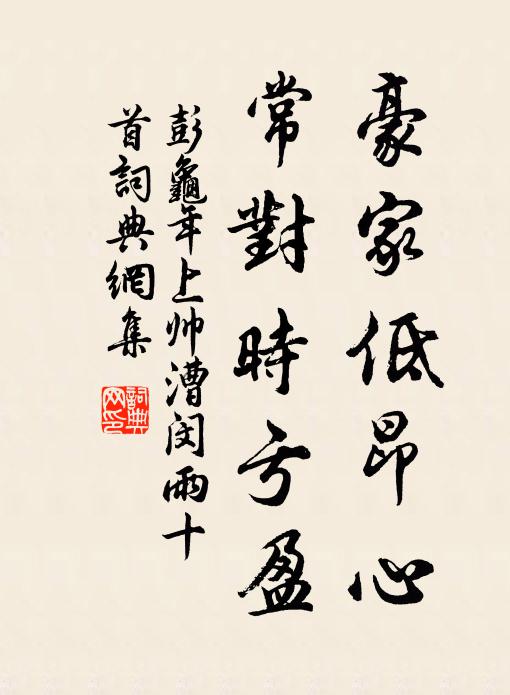 豪家低昂心
常對時亏盈
彭龜年上帅漕闵雨十
首詞典網集
詞典
网印